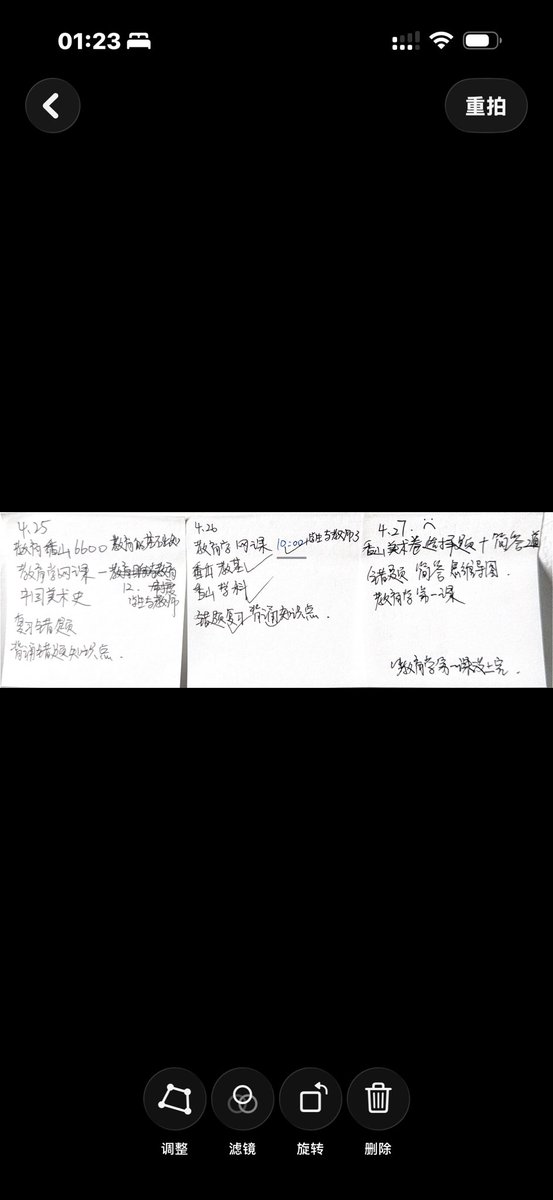 01:23
重拍
4.25
教育香山6600 教育的基本
教育学网课一
12.
中国美术史 学生与教师
复习错题
背诵错题知识点.
4.26
教育学网课 10:00 学生与教师3
香山教基
香山学科
错题复习 背诵知识点.
4.27.
香山美术卷选择题+简答道
错题 简答思维导图
教育学第一课
教育学第一课没上完.
调整 滤镜 旋转 删除